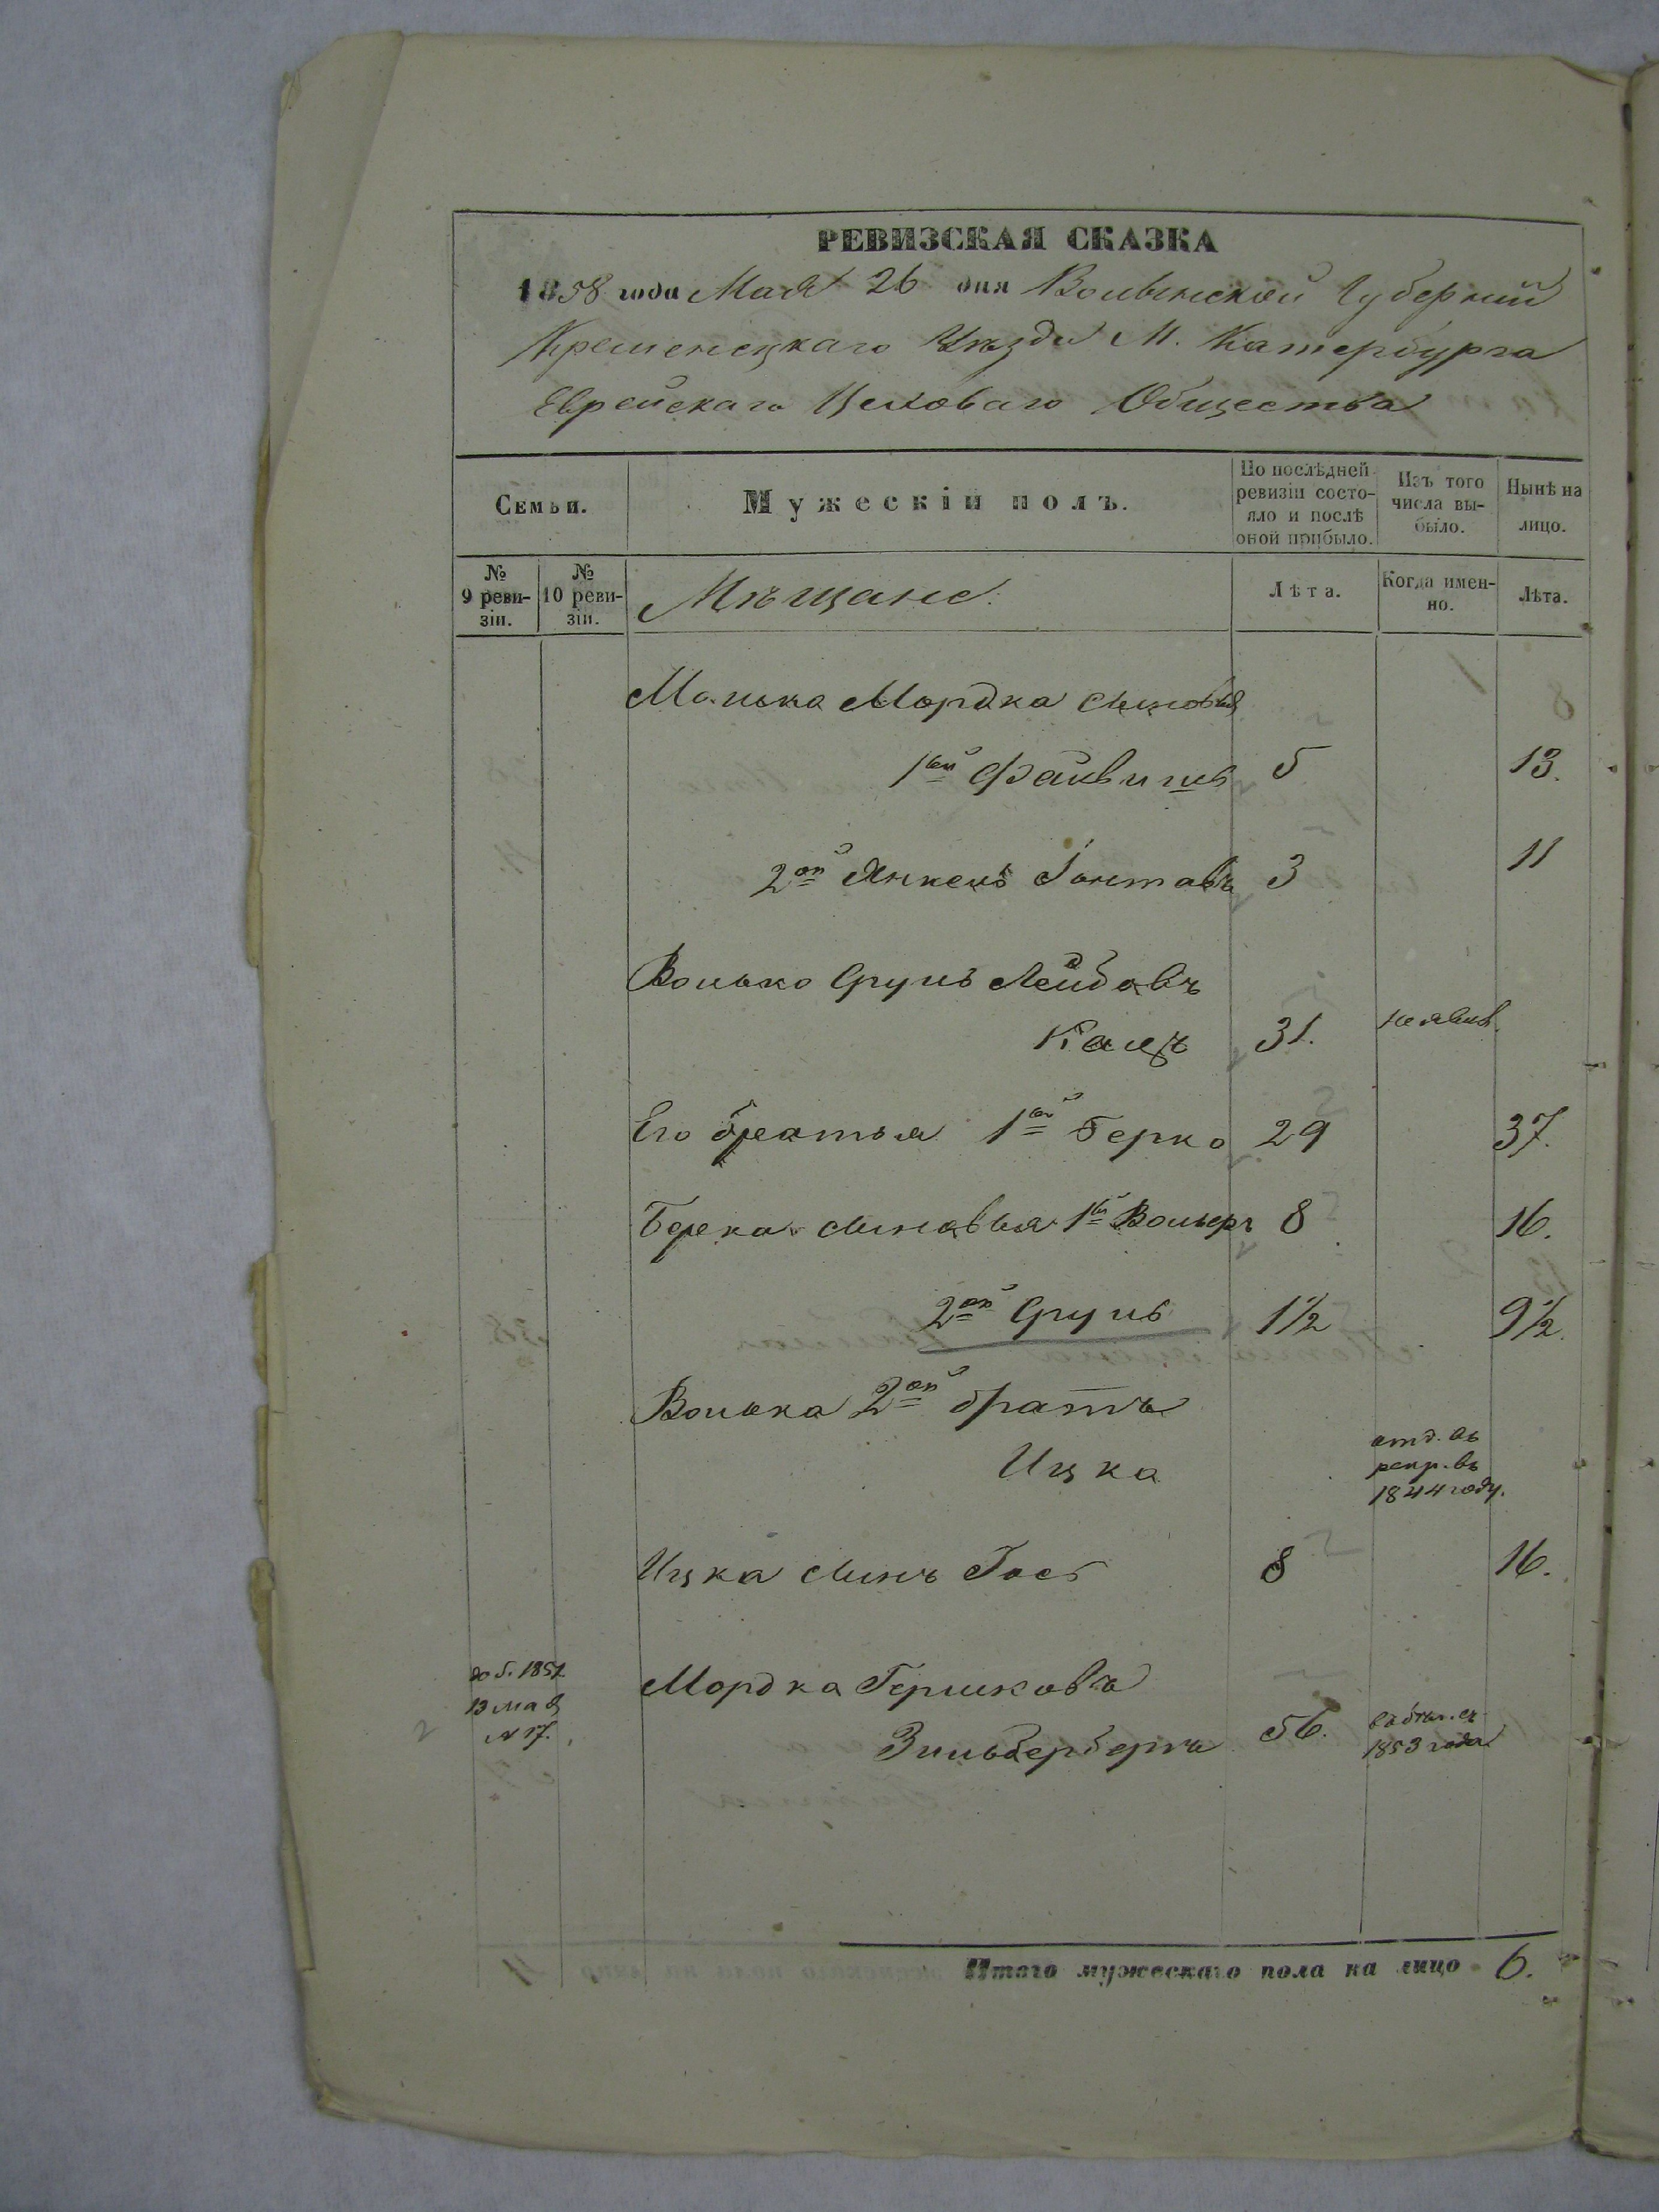 РЕВИЗСКАЯ СКАЗКА
1858 года Мая 26 дня Волынской Губерніи
Кременецкаго Уѣзда М. Катербурга
Еврейскаго Цеховаго Общества
Семьи.
Мужескій полъ.
По послѣдней ревизіи состояло и послѣ оной прибыло.
Изъ того числа выбыло.
Нынѣ на лицо.
№ 9 ревизіи.
№ 10 ревизіи.
Мѣщане.
Лѣта.
Когда именно.
Лѣта.
Мордка сыновья
1ый Файвишъ 5 13.
2ой Янкель 3 11
Волько Сруль Лейбовъ
Кацъ 31. неявив.
Его братья 1ый Берко 29 37.
Берка сыновья 1ый Вольеръ 8 16.
2ой Сруль 1½ 9½
Волька 2ой братъ
Ицка
отд. въ
рекр. въ
1844 году.
Ицка сынъ Іось 8 16.
доб. 1851
13 мая
№ 17.
Мордка Гершковъ
Зильбербергъ 56.
1853 года
Итого мужескаго пола на лицо 6.